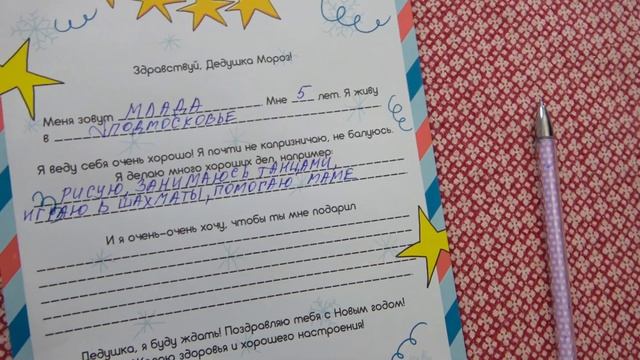 Здравствуй, Дедушка Мороз!
Меня зовут МЛАДА. Мне 5 лет. Я живу
в ПОДМОСКОВЬЕ
Я веду себя очень хорошо! Я почти не капризничаю, не балуюсь.
Я делаю много хороших дел, например:
РИСУЮ, ЗАНИМАЮСЬ ТАНЦАМИ,
ИГРАЮ В ШАХМАТЫ, ПОМОГАЮ МАМЕ
И я очень-очень хочу, чтобы ты мне подарил
Дедушка, я буду ждать! Поздравляю тебя с Новым годом!
Желаю здоровья и хорошего настроения!